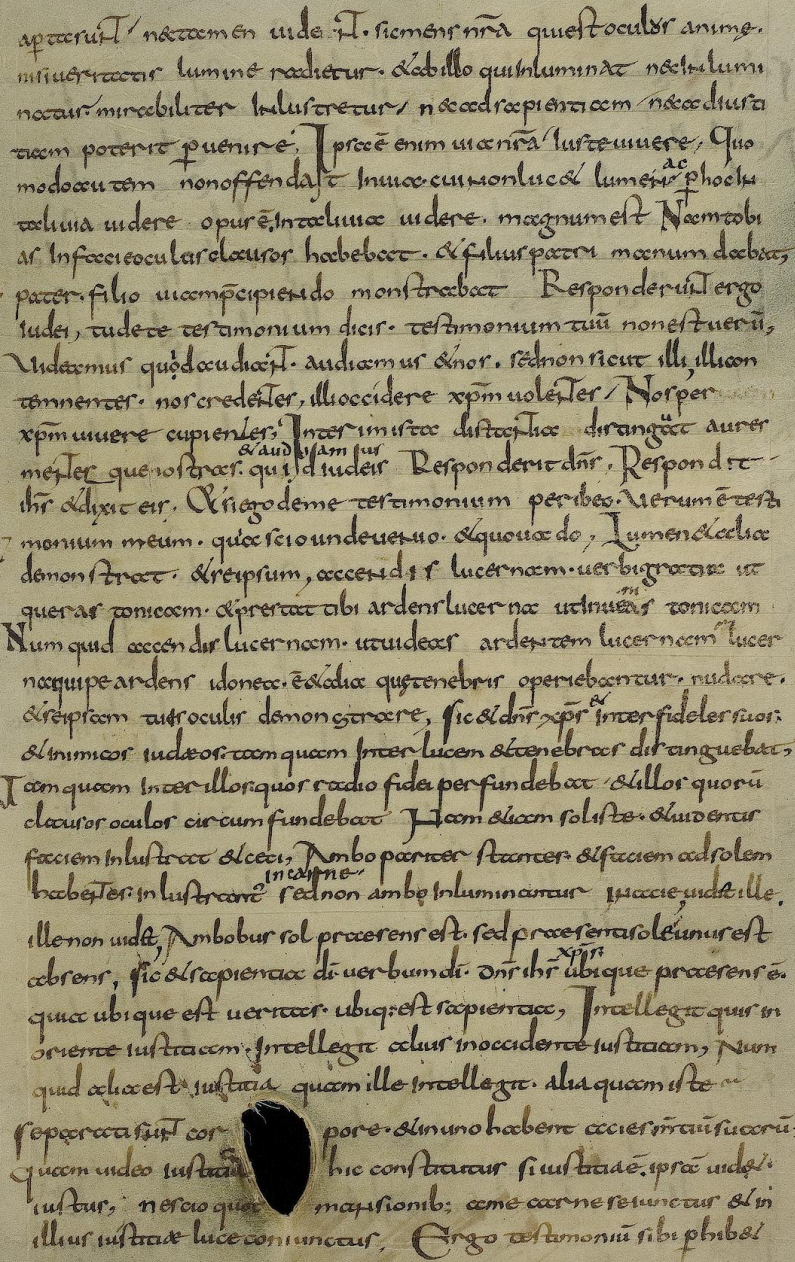 apertasunt / nectamen uident. sicmens nr̄a quiest oculus animę.
nisi ueritatis lumine radietur. & ab illo qui inluminat nec inlumi
natus. mirabiliter inlustretur / nec ad sapientiam / nec ad iusti
tiam poterit p̱uenire. Ipsa ē enim uia nr̄a iuste uiuere, Quo
modo autem non offendat In uia. cui non luc& lumen ac p̱hoc in
tali uia uidere opus ē, In tali uia uidere. magnum est Nam tobi
as In facie oculis clausos habebat. & filius patri manum dabat,
pater. filio uiam p̄cipiendo monstrabat Responderunt ergo
iudei, tu de te testimonium dicis. testimonium tuū non est uerū,
Videamus quod audiant. audiamus & nos. sed non sicut illi, illi con
temnentes. nos credentes, illi occidere xp̄m uolentes / Nos per
xp̄m uiuere cupientes, Interim ista distantia distinguat aures
mentes que nostras. & audiamus qui iudeis Responderit dn̄s, Respondit
ih̄s & dixit eis. Et si ego de me testimonium peribeo. Verum ē testi
monium meum. quia scio unde uenio. & quo uado, Lumen & alia
demonstrat. & se ipsum, accendis lucernam. uerbi gratia ut
queras tonicam. & prestat tibi ardens lucerna ut inuenias tonicam
Numquid accendis lucernam. ut uideas ardentem lucernam lucer
na quipe ardens idonea. ē & alia quę tenebris operiebantur. nudare.
& se ipsam tuis oculis demonstrare, sic & dn̄s xp̄s & inter fideles suos.
& inimicos iudæos. tamquam Inter lucem & tenebras distinguebat,
Tamquam inter illos. quos radio fidei perfundebat. & illos quorū
clausos oculos circumfundebat Nam & iam sol iste. & uidentis
faciem inlustrat & ceci, Ambo pariter stantes. & faciem ad solem
habentes. inlustrant᷒ in carne. sed non ambo Inluminantur In acie, uid& ille.
ille non uid&, Ambobus sol praesens est. sed praesenti sole, unus est
absens, sic & sapientia dī. uerbum dī. dn̄s ih̄s xp̄s ubique praesens ē.
quia ubique est ueritas. ubiq: est sapientia, Intellegit quis in
oriente iustitiam. Intellegit alius in occidente iustitiam, Num
quid alia est iustitia quam ille intellegit. alia quam iste
separati sunt cor pore. & in uno habent acies mentiū suarū
quam uideo iustitiā hic constitutus si iustitia ē. ipsā uid&
iustus, nescio quot mansionib: a me carne seiunctus & in
illius iustitiæ luce coniunctus, Ergo testimoniū sibi p̱hib&